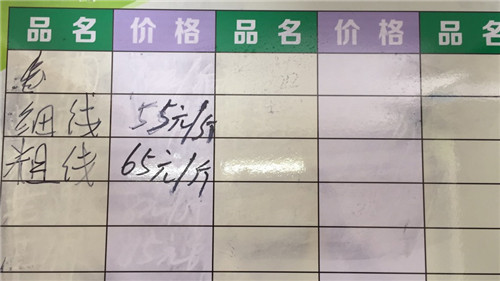 品名 价格 品名 价格 品名
细线 55元/斤
粗线 65元/斤